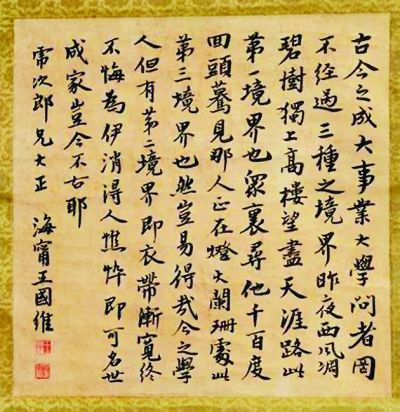 古今之成大事業大學問者罔
不經過三種之境界昨夜西風凋
碧樹獨上高樓望盡天涯路此
第一境界也衆裏尋他千百度
回頭驀見那人正在燈火闌珊處此
第三境界也然豈易得哉今之學
人但有第二境界即衣帶漸寬終
不悔為伊消得人憔悴即可名世
成家豈今不古耶
次郎兄大正
海甯王國維